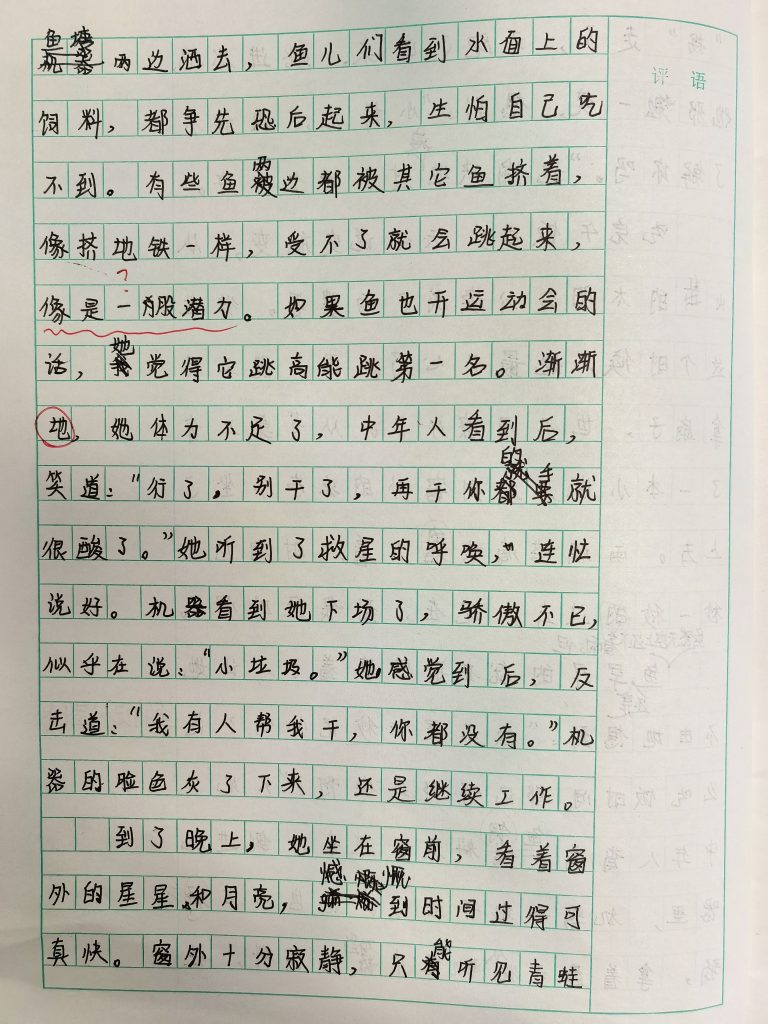 评语
鱼塘两边洒去，鱼儿们看到水面上的
饲料，都争先恐后起来，生怕自己吃
不到。有些鱼两边都被其它鱼挤着，
像挤地铁一样，受不了就会跳起来，
？
像是一股潜力。如果鱼也开运动会的
话，她觉得它跳高能跳第一名。渐渐
地，她体力不足了，中年人看到后，
笑道：“行了，别干了，再干你的手就
很酸了。”她听到了救星的呼唤，连忙
说好。机器看到她下场了，骄傲不已，
似乎在说：“小垃圾。”她感觉到后，反
击道：“我有人帮我干，你都没有。”机
器的脸色灰了下来，还是继续工作。
到了晚上，她坐在窗前，看着窗
外的星星和月亮，感慨到时间过得可
真快。窗外十分寂静，只能听见青蛙